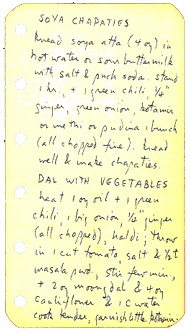 SOYA CHAPATIES
knead soya atta (4 oz) in
hot water or sour buttermilk
with salt & pinch soda. stand
1 hr., + 1 green chili ½"
ginger, green onion, kotamir
or methi or pudina 1 bunch
(all chopped fine). knead
well & make chapaties.
DAL WITH VEGETABLES
heat 1 oz oil + 1 green
chili, 1 big onion ½" ginger
(all chopped), haldi; throw
in 1 cut tomato, salt & ½ t
masala pwd, stir few min.,
+ 2 oz moong dal & 4 oz
cauliflower & 1 c water
cook tender, garnish little kotamir.